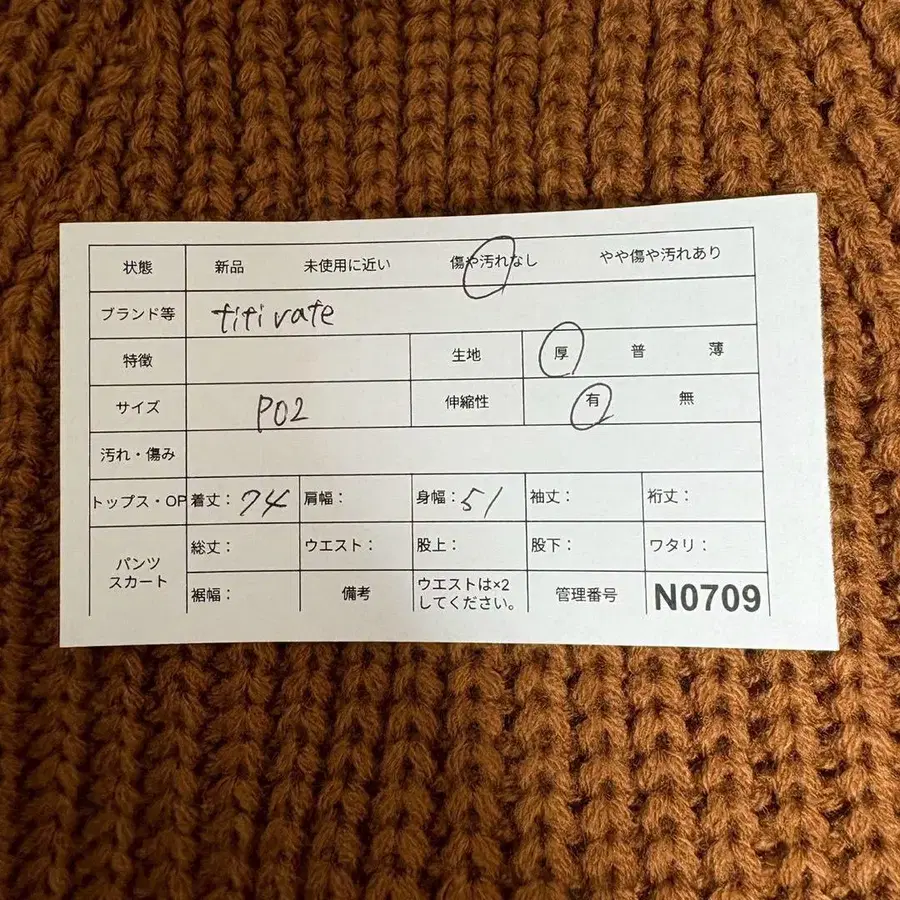 状態 新品 未使用に近い 傷や汚れなし やや傷や汚れあり
ブランド等 titivate
特徴 生地 厚 普 薄
サイズ P02 伸縮性 有 無
汚れ・傷み
トップス・OP 着丈：74 肩幅： 身幅：51 袖丈： 裄丈：
パンツ スカート 総丈： ウエスト： 股上： 股下： ワタリ：
裾幅： 備考 ウエストは×2 してください。 管理番号 N0709